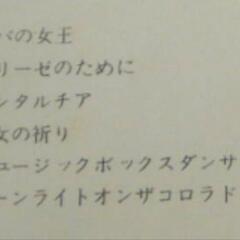 バの女王
リーゼのために
ンタルチア
女の祈り
ュージックボックスダンサ
ーンライトオンザコロラド